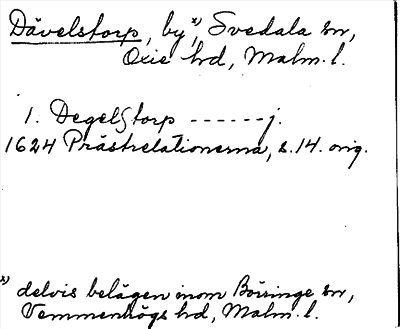 Dävelstorp, by x), Svedala sn,
Oxie hd, Malm. l.
1. Degelstorp ------j.
1624 Prästrelationerna, s. 14. orig.
x) delvis belägen inom Börringe sn,
Vemmenhögs hd, Malm. l.